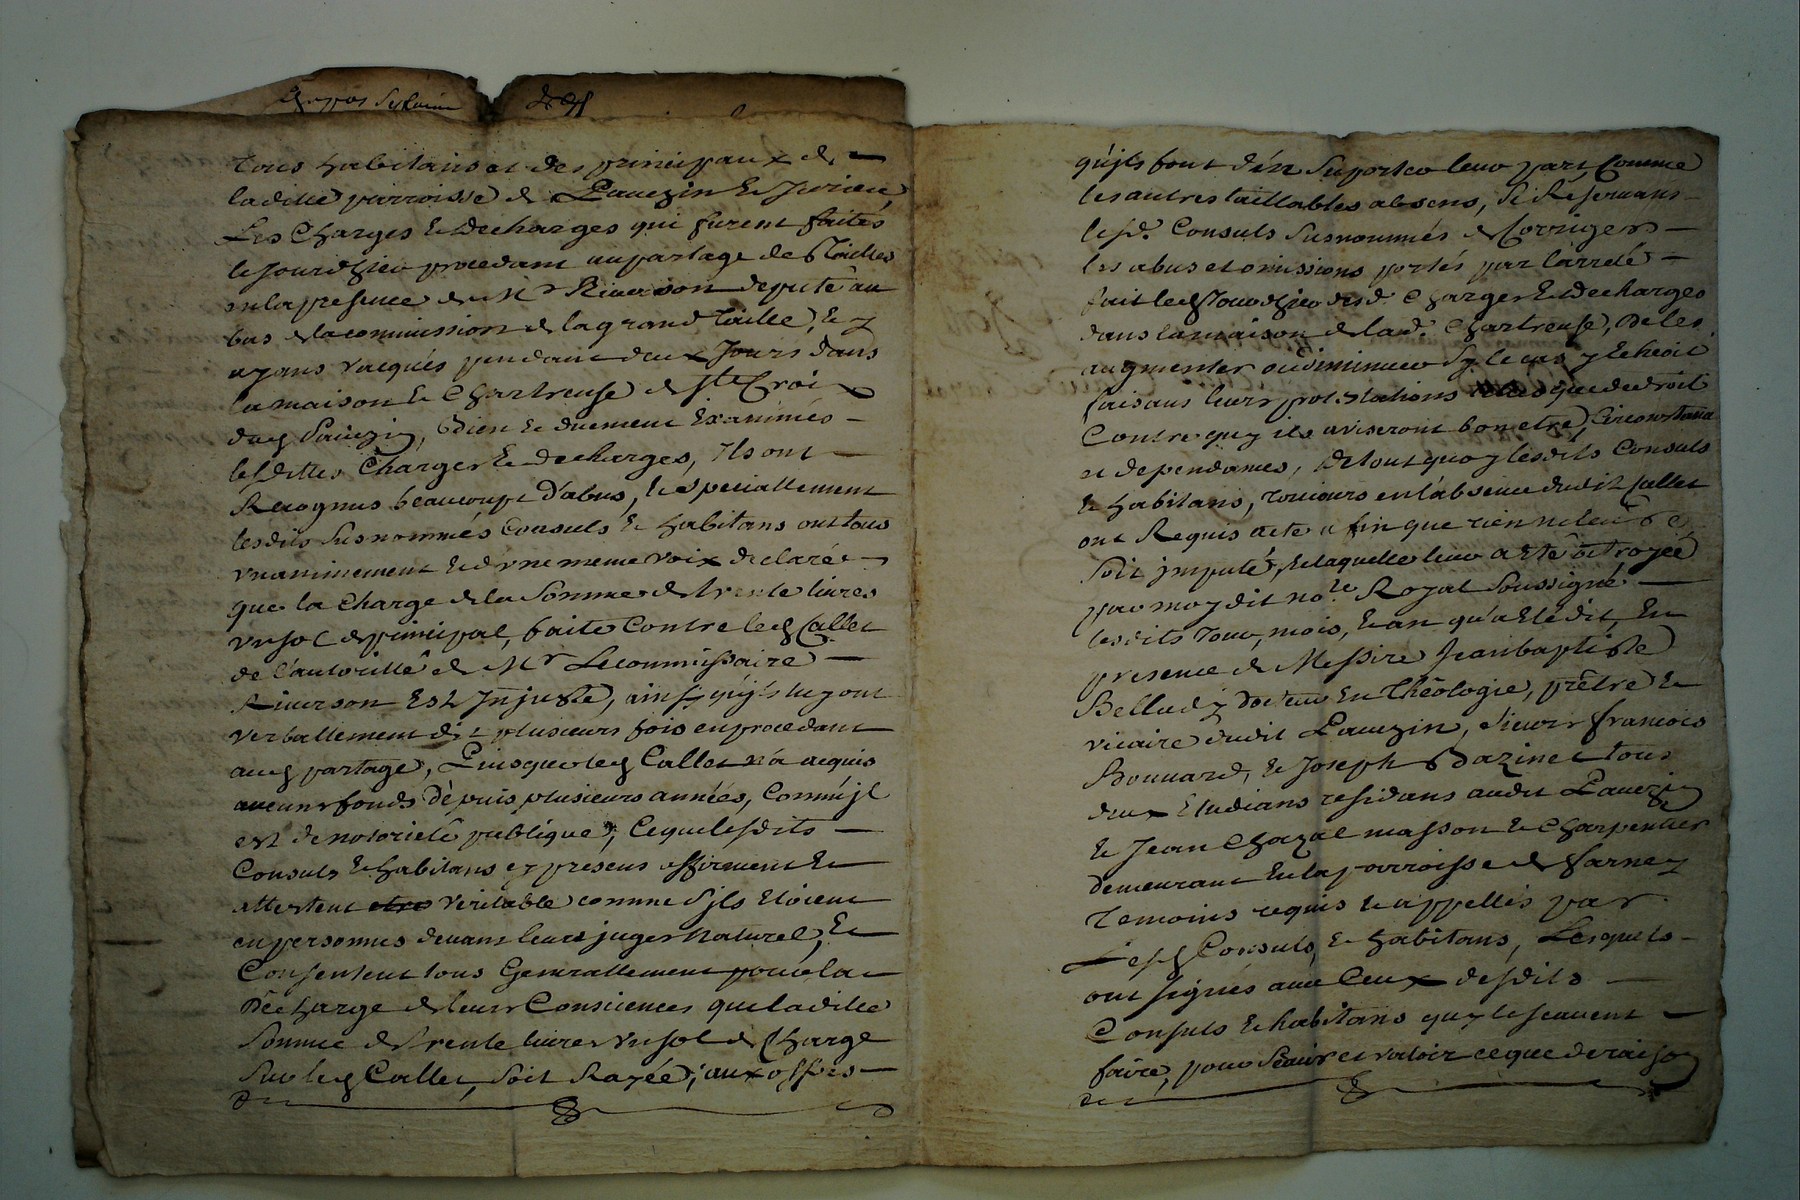 tous habitans et des principaux de
laditte parroisse de Pavezin Et Jurieu,
Les Charges Et decharges qui furent faites
le jourdhieu procedant au partage des Tailles
en la presence de Mr Riverson deputé au
bas de la commission de la grand Taille, Et y
ayans vacqués pendant deux Jours dans
la maison Et Chartreuse de Ste Croix
dud Pavezin, Bien Et duement Examinés
lesdittes Charges Et decharges, Ils ont
Recognus beaucoupt d'abus, Et speciallement
lesdits susnommés Consuls Et habitans ont tous
vnanimement Et d'vne meme voix declaré
que la Charge de la Somme de trente livres
vn sol de principal, faite Contre led Callet
de l'autorittê de Mr Lecommissaire
Riverson Est Injuste, ainsy qu'ils luy ont
verballement dit plusieurs fois en procedant
aud partage, Puisque led Callet n'a acquis
aucuns fonds dépuis plusieurs années, Comm'jl
est de notorieté publique, Ce que lesdits
Consuls Et habitans cy presens affirment Et
attestent etre veritable comme s'jls Etoient
en personnes devans leurs juges naturel, Et
Consentent tous Generallement pour la
Décharge de leurs Consciences que laditte
Somme de trente livres vn sol de Charge
sur led Callet, soit Rayée, aux offres
de
qu'jls font d'én suporter leur part, Comme
les autres taillables absens, se Reservans
lesd. Consuls susnommés de Corriger
les abus et omissions portés par l'arrété
fait led Jourdhieu desd. Charges Et decharges
dans la maison de lad. Chartreuse, De les
augmenter ou diminuer sy le cas y Echeoit
faisans leurs protestations telles que de droit
Contre quy ils aviseront bon etre, Circonstance
et dependances, de tout quoy lesdits Consuls
Et habitans, toujours en l'absence dudit Callet
ont Requis acte afin que rien ne leur
soit jmputé, Et laquelle leur a Etê octroyée
par moy dit nore Royal Soussigné
lesdits Jour, mois, Et an qu'a Eté dit, En
presence de Messire Jean baptiste
Belludy docteur En Thêologie, prêtre Et
vicaire dudit Pavezin, sieurs francois
Bouvard, Et Joseph Bazin et tous
deux Etudians residans audit Pavezin
Et Jean Chazal masson Et Charpentier
demeurant En la parroisse de farnay
Temoins requis Et appellés par
Lesd Consuls, Et habitans, Lesquels
ont signés avec Ceux desdits
Consuls Et habitans quy le scavent
faire, pour servir et valoir ce que de raison
de